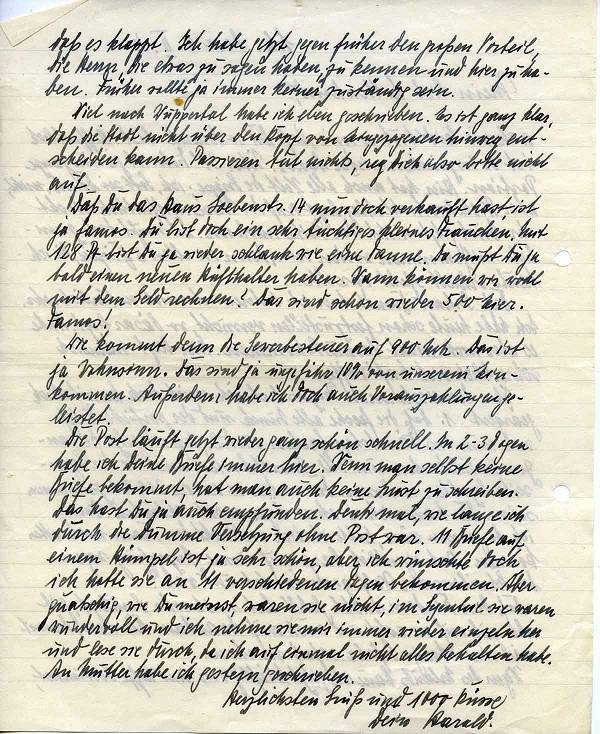 daß es klappt. Ich habe jetzt gegen früher den großen Vorteil,
die Herrn, die etwas zu sagen haben, zu kennen und hier zu ha-
ben. Früher sollte ja immer keiner zuständig sein.
Viel nach Wuppertal habe ich eben geschrieben. Es ist ganz klar,
daß die Stadt nicht über den Kopf von hinweg ent-
scheiden kann. Passieren tut nichts, reg Dich also bitte nicht
auf.
Daß Du das Haus 14 nun doch verkauft hast ist
ja famos. Du bist doch ein sehr tüchtiges kleines Frauchen. Mit
128 ℔ bist Du ja wieder schlank wie eine Tanne. Da mußt Du ja
bald einen neuen Hüfthalter haben. Wann können wir wohl
mit dem Geld rechnen? Das sind schon wieder 500 hier.
Famos!
Wie kommt denn die Gewerbesteuer auf 900 Mk. Das ist
ja Wahnsinn. Das sind ja ungefähr 10% von unserem Ein-
kommen. Außerdem habe ich doch auch Vorauszahlungen ge-
leistet.
Die Post läuft jetzt wieder ganz schön schnell. In 2-3 Tagen
habe ich Deine Briefe immer hier. Wenn man selbst keine
Briefe bekommt, hat man auch keine Lust zu schreiben.
Das hast Du ja auch empfunden. Denk mal, wie lange ich
durch die dumme Versetzung ohne Post war. 11 Briefe auf
einem Klumpel ist ja sehr schön, aber ich wünschte doch
ich hätte sie an 11 verschiedenen Tagen bekommen. Aber
quatschig, wie Du meinst, waren sie nicht, im Gegenteil sie waren
wundervoll und ich nehme sie mir immer wieder einzeln her
und lese sie durch, da ich auf einmal nicht alles behalten habe.
An Mutter habe ich gestern geschrieben.
Herzlichsten Gruß und 1000 Küsse
Dein Harald.